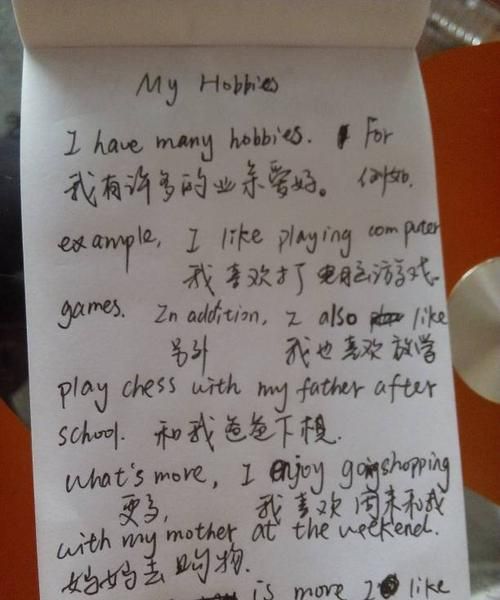 My Hobbies
I have many hobbies. For
我有许多的业余爱好。 例如.
example, I like playing computer
我喜欢打电脑游戏.
games. In addition, I also like
另外 我也喜欢放学
play chess with my father after
school. 和我爸爸下棋.
what's more, I enjoy going shopping
更多, 我喜欢周末和我
with my mother at the weekend.
妈妈去购物.
is more I like